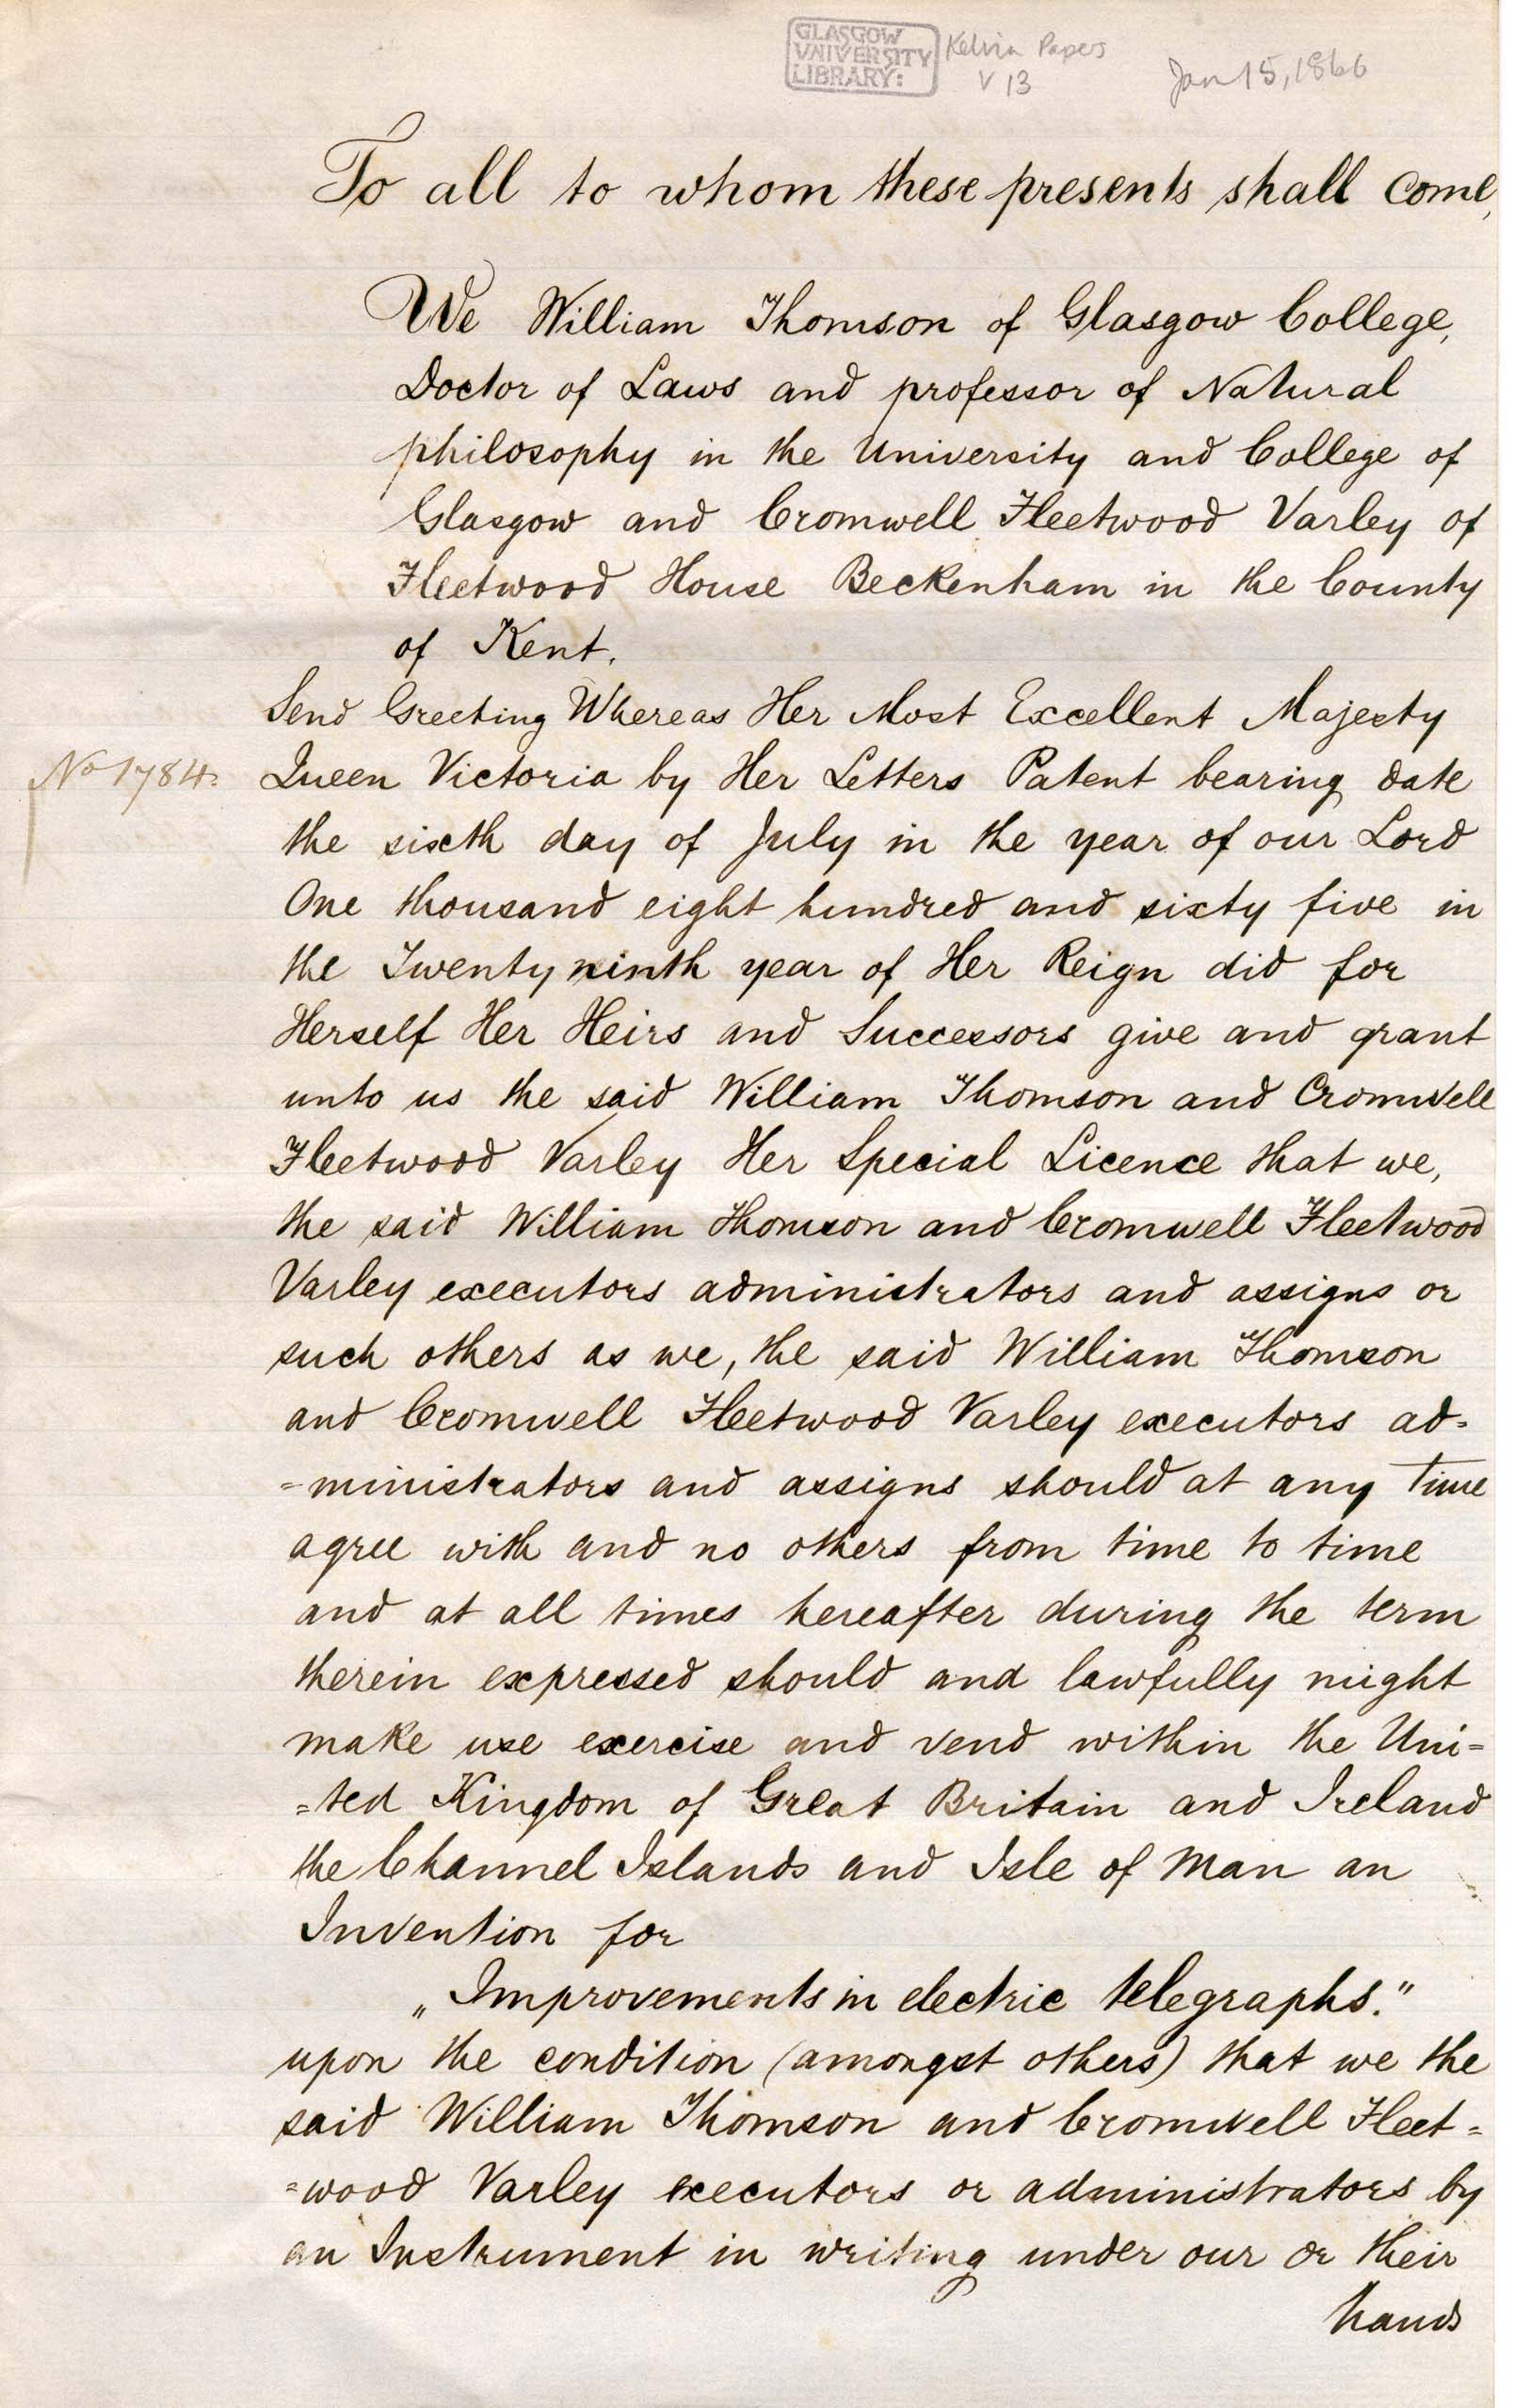 GLASGOW
UNIVERSITY
LIBRARY:
Kelvin Papers
V 13
Jan 15, 1866
To all to whom these presents shall come,
We William Thomson of Glasgow College,
Doctor of Laws and professor of Natural
philosophy in the University and College of
Glasgow and Cromwell Fleetwood Varley of
Fleetwood House Beckenham in the County
of Kent.
Send Greeting Whereas Her Most Excellent Majesty
No 1784.
Queen Victoria by Her Letters Patent bearing date
the sixth day of July in the year of our Lord
One thousand eight hundred and sixty five in
the Twenty ninth year of Her Reign did for
Herself Her Heirs and Successors give and grant
unto us the said William Thomson and Cromwell
Fleetwood Varley Her Special Licence that we,
the said William Thomson and Cromwell Fleetwood
Varley executors administrators and assigns or
such others as we, the said William Thomson
and Cromwell Fleetwood Varley executors ad=
=ministrators and assigns should at any time
agree with and no others from time to time
and at all times hereafter during the term
therein expressed should and lawfully might
make use exercise and vend within the Uni=
=ted Kingdom of Great Britain and Ireland
the Channel Islands and Isle of Man an
Invention for
„Improvements in electric telegraphs."
upon the condition (amongst others) that we the
said William Thomson and Cromwell Fleet=
=wood Varley executors or administrators by
an Instrument in writing under our or their
hands